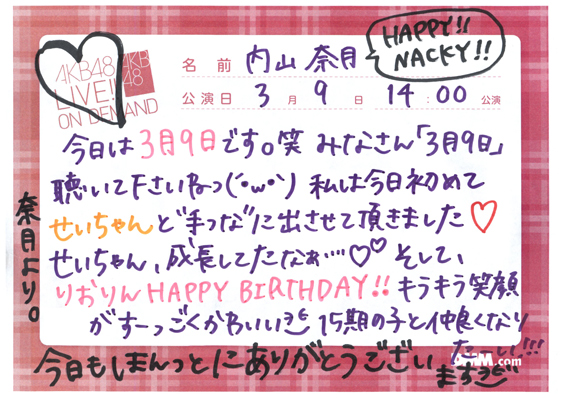 HAPPY!!
NACKY!!
AKB48
LIVE!!
ON DEMAND
AKB
48
名 前 内山 奈月
公演日 3 月 9 日 14:00 公演
今日は3月9日です。笑 みなさん「3月9日」
聴いて下さいねっ(´・ω・`) 私は今日初めて
せいちゃんと"手つな"に出させて頂きました♡
せいちゃん、成長してたなぁ…♡♡ そして、
りおりん HAPPY BIRTHDAY!! キラキラ笑顔
がすーっごくかわいい 15期の子と仲良くなり
たーい!!!
奈月より。
今日もしまんっとにありがとうござい
ます
.com